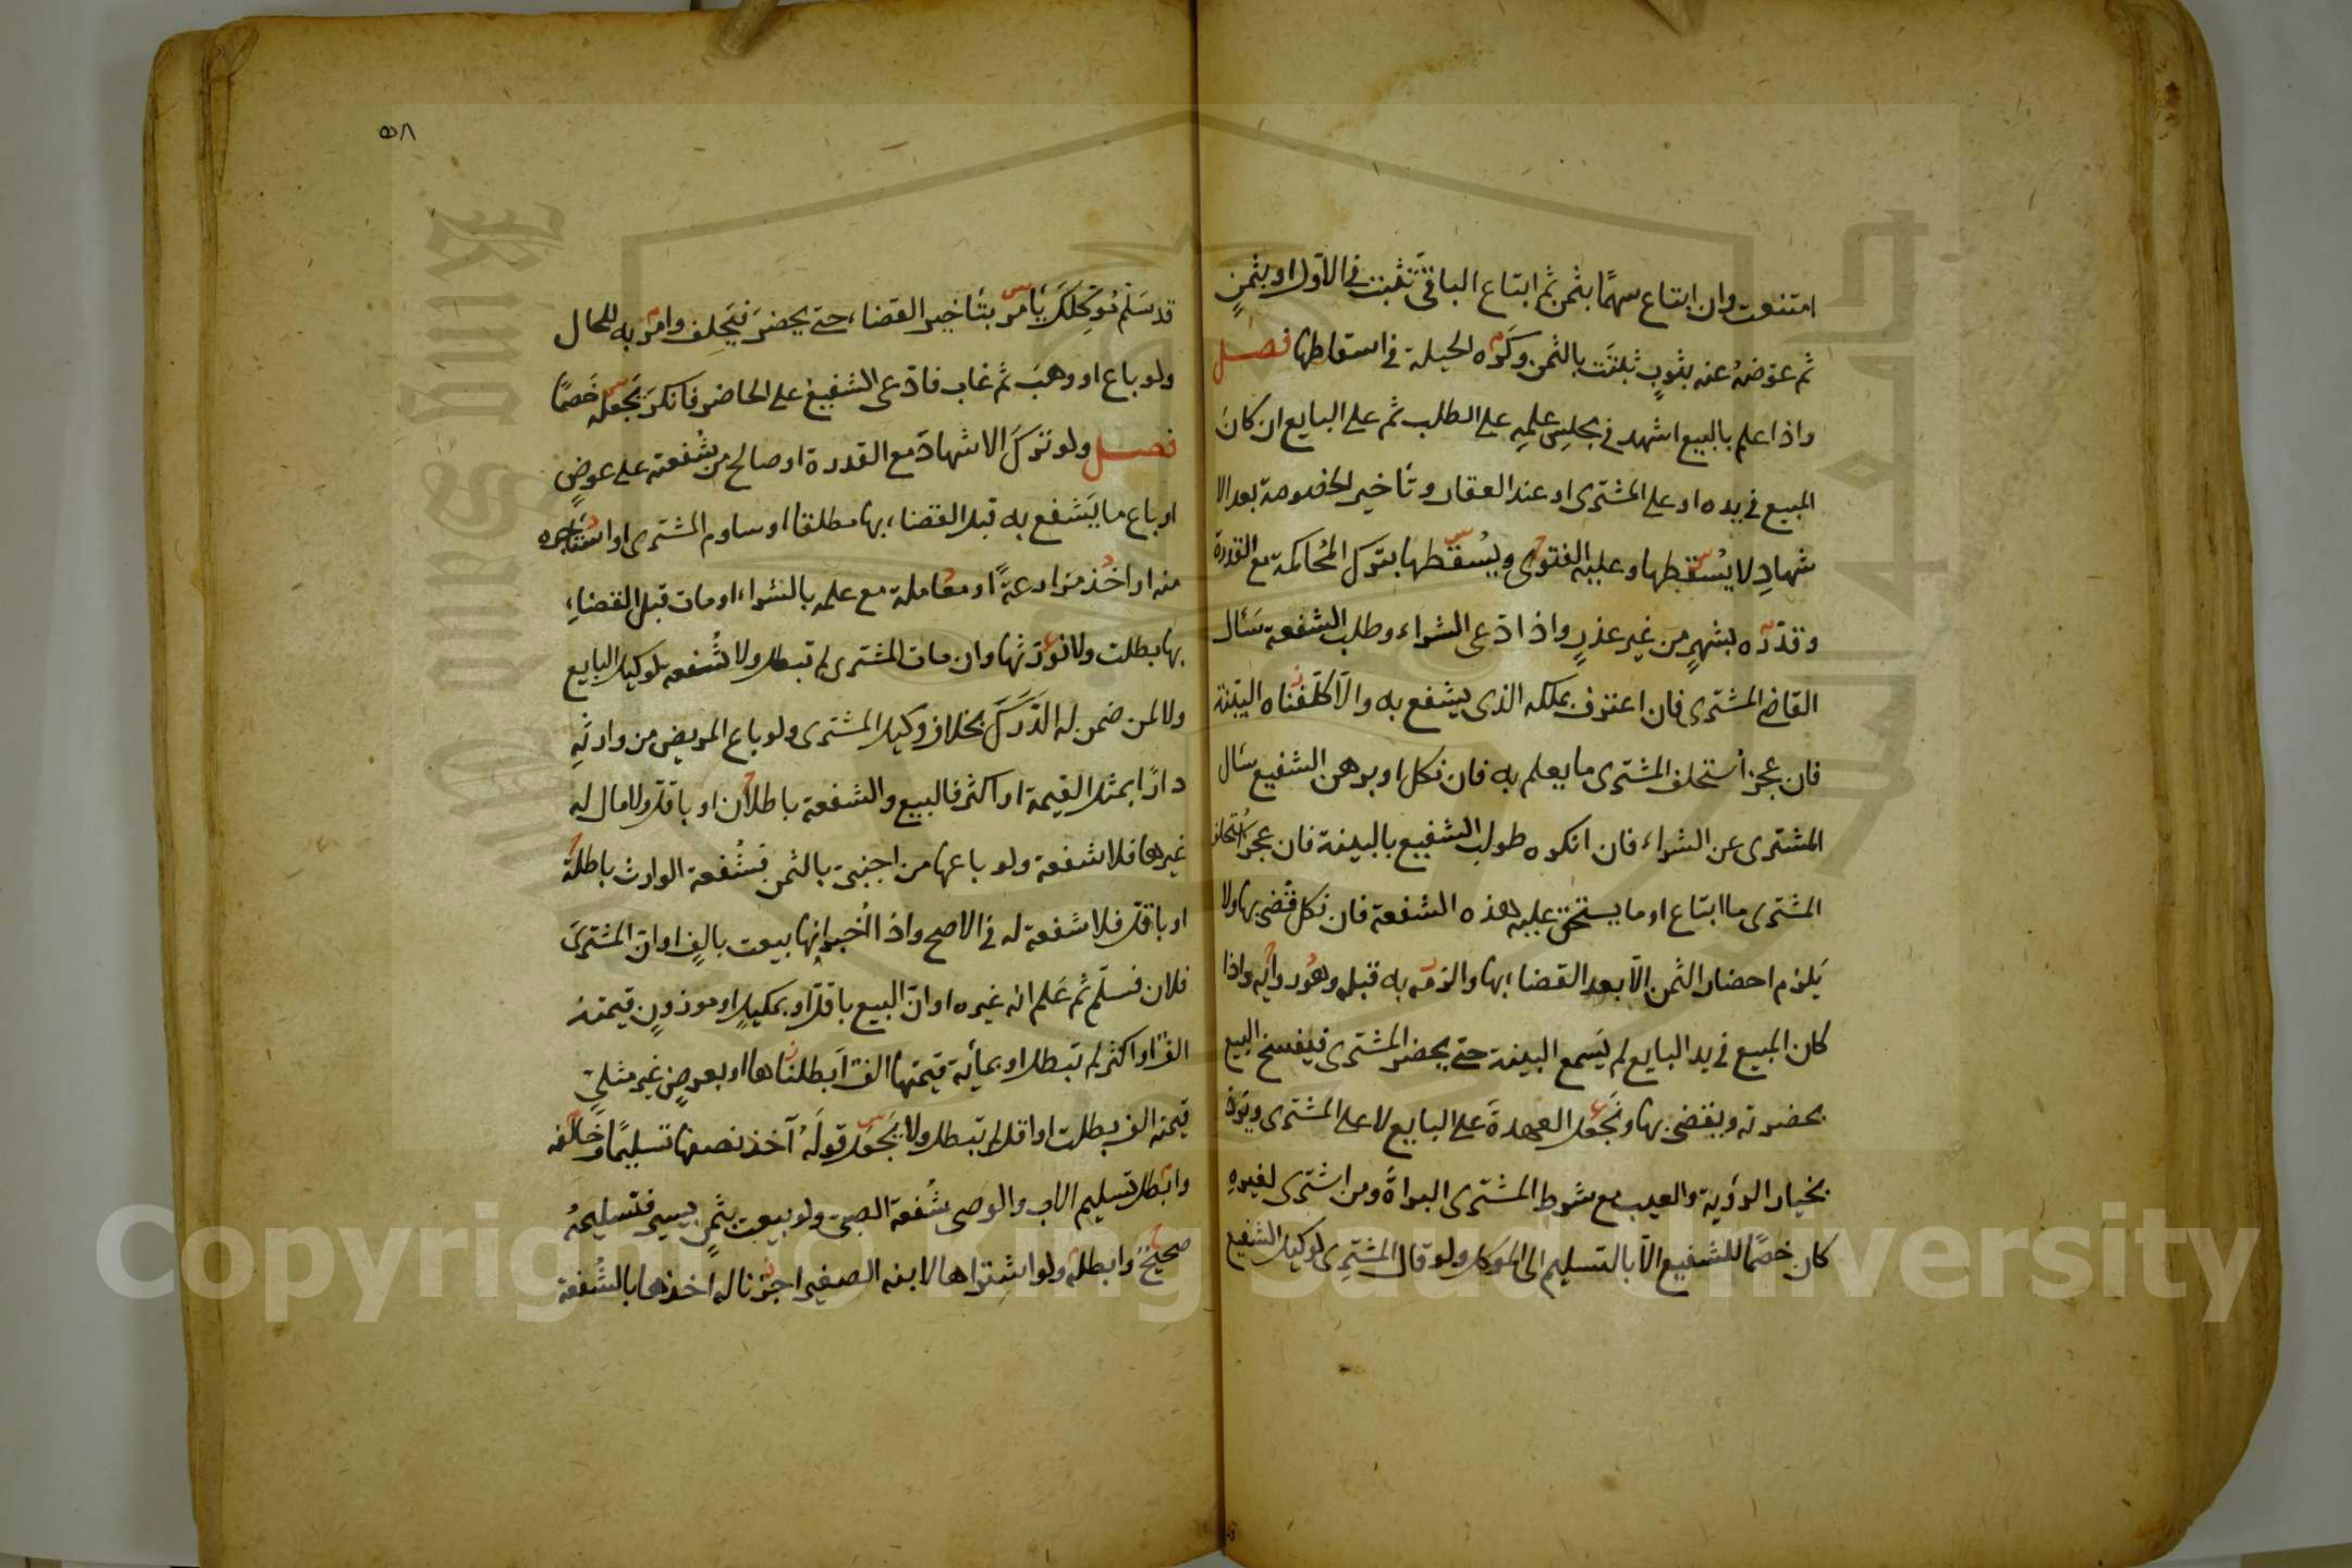 امتنعت وان ابتاع سهمًا بثمن ثم ابتاع الباقي تثبت في الاول او بثمنٍ
ثم عوّضهُ عنه بثوبٍ ثبتت بالثمن وكره الحيلة في اسقاطها فصل
واذا علم بالبيع اشهد في مجلس علمِه على الطلب ثم على البايع ان كان
المبيع في يده او على المشترى او عند العقار وتأخير الخصومة بعد الا
شهادِ لا يُسقطها وعليه الفتوى ويُسقطها بترك المُحاكمة مع القدرة
وقدّره بشهرٍ من غير عذرٍ واذا ادّعى الشراء وطلب الشفعة سَئال
القاضي المشترى فان اعترف بملكه الذى يشفع به والّا كلّفناه البيّنة
فان عجز اُستحلف المشترى ما يعلم به فان نكل او برهن الشفيع سئال
المشترى عن الشراء فان انكره طولب الشفيع بالبينة فان عجز اُستحلف
المشترى ما ابتاع او ما يستحق عليه هذه الشفعة فان نكل قُضى بها ولا
يَلزم احضار الثمن الّا بعد القضاء بها والزمه به قبله وهُو روايه واذا
كان المبيع في يد البايع لم يَسمع البينة حتى يحضر المشترى فيفسخ البيع
بحضرته ويقضى بها ونجعل العهدةَ على البايع لا على المشترى ويَردّ
بخيار الرؤية والعيب مع شرط المشترى البراةَ ومن اشترى لغيرهِ
كان خصمًا للشفيع الّا بالتسليم الى الموكل ولو قال المشترِى لوكيل الشفيع
٥٨
قد سَلّم مُوكّلك يأمر بتأخير القضاء حتى يحضرَ فيَحلِف وامر به للحال
ولو باع او وهبَ ثم غاب فادّعى الشفيع على الحاضر فانكرَ يجعله خَصمًا
فصل ولو ترك الاشهادَ مع القدرة او صالح من شُفعته على عوضٍ
او باع ما يَشفع به قبل القضاء بها مطلقا او ساوم المشترى او استأجره
منه او اخذ مزارعةً او معاملة مع علمه بالشراء او مات قبل القضاءِ
بها بطلت ولا نورّثها وان مات المشترى لم تبطل ولا شُفعه لوكيل البايع
ولا لمن ضمن له الدّرَكَ بخلاف وكيل المشترى ولو باع المريض من وارثهِ
دارًا بمثل القيمة او اكثر فالبيع والشفعة باطلان او باقل ولا مال له
غيرها فلا شفعة ولو باعها من اجنبيّ بالثمن فشُفعة الوارث باطلة
او باقل فلا شفعة له في الاصح واذا اُخبر انها بيعت بالفٍ او ان المشترىَ
فلان فسلّم ثم عَلم انه غيره او ان البيع باقل او بمكيلٍ او موزونٍ قيمته
الفٌ او اكثر لم تبطل او بمأية قيمتها الفٌ اَبطلناها او بعرضٍ غير مثليّ
قيمته الف بطلت او اقل لم تبطل ولا يَجعل قولَهُ آخذ نصفها تسليمًا وخالفه
وابطل تسليم الاب والوصى شُفعة الصبى ولو بيعت بثمنٍ يسير فتسليمهُ
صحيحٌ وابطله ولو اشتراها لابنه الصغير اجزنا له اخذها بالشُفعة
Copyright © King Saud University